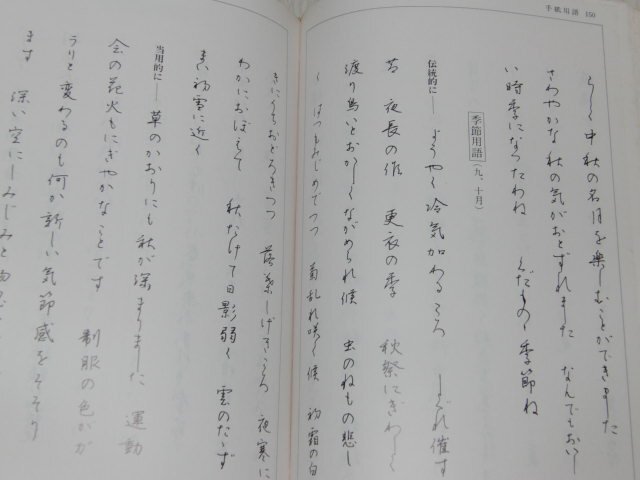 手紙用語 150
らしく 中秋の名月を楽しむことができました
さわやかな秋の気がおとずれました なんでもおいし
い時季になつたわね くだものゝ季節ね
季節用語(九、十月)
伝統的に── ようやく冷気加わるころ しぐれ催す
昔 夜長の作 更衣の季 秋祭にぎわしく
渡り鳥いとおかしくながめられ候 虫のねもの悲し
く はつもみじめでつつ 菊乱れ咲く候 初霜の白
きにうちおどろきつつ 落葉しげきころ 夜寒に
わかにおぼえて 秋たけて日影弱く 雲のたたず
まい初雪に近く
当用的に── 草のかおりにも秋が深まりました 運動
会の花火もにぎやかなことです 制服の色がが
らりと変わるのも何か新しい気節感をそそり
ます 深い空にしみじみと